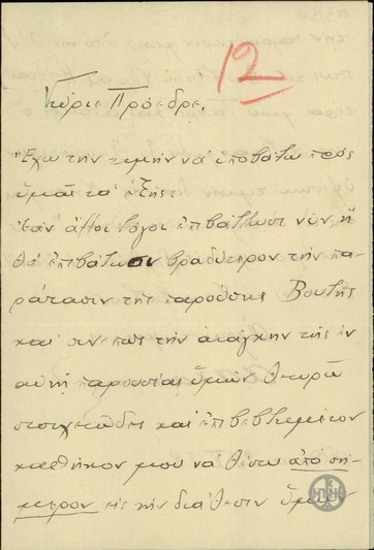 12
Κύριε Πρόεδρε,
Ἔχω τὴν τιμὴν νὰ ὑποβάλω πρὸς
ὑμᾶς τὰ ἑξῆς:
Ἐὰν ἄλλοι λόγοι ἐπιβάλλωσι νῦν, ἢ
θὰ ἐπιβάλωσιν βραδύτερον τὴν πα-
ράτασιν τῆς παρούσης Βουλῆς
καὶ συνεπῶς τὴν ἀνάγκην τῆς ἐν
αὐτῇ παρουσίας ὑμῶν θεωρῶ
στοιχειῶδες καὶ ἐπιβεβλημένον
καθῆκον μου νὰ θέσω ἀπὸ σή-
μερον εἰς τὴν διάθεσιν ὑμῶν